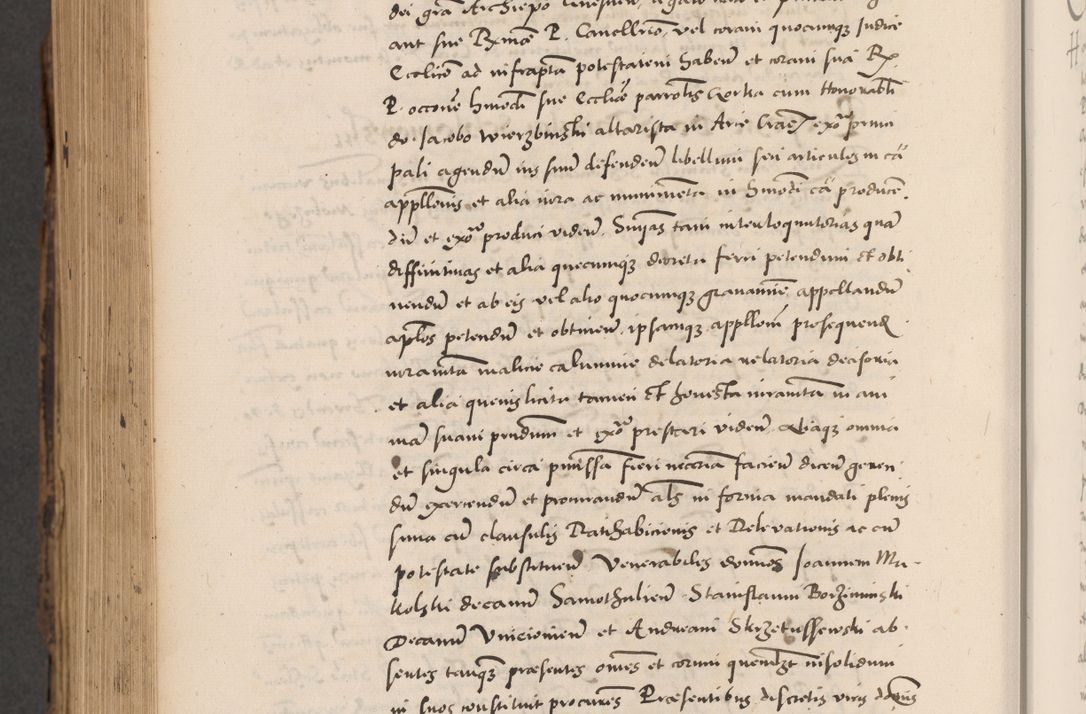 dei gra Archiepo Gnesnen, legato nato et
aut sue Rxme P. Cancellrio, vel coram quocunq3 Judice
Eccliae ad infrapta potestatem haben et coram sua Rx.
P. occone hmodi sue Eccliae parrolis cum Honorabli
do. Jacobo Wierzbinski altarista in Arce exore princi
pali agendu ius suu defenden libellum seu articulos in ca
appllonis et alia iura ac munimenta in hmodi ca producen
du et exore produci viden. Sinias tam interloquutorias qua
diffinitivas et alia quecunq3 decreta ferri petendum et obti
nendu et ab eis vel alio quocunq3 gravamine appellandu
aplos petendu et obtinen. ipsamq3 appllonem prosequend
iuramta malicie calumnie delatoria relatoria decisoria
et alia quevis licita tamen et honesta iuramta in ani
mam suam prndum et exore prestari viden. Aliaq3 omnia
et singula circa pmissa fieri necria facien dicen geren
du exercendu et procurandu als in forma mandati plenis
sima cu clausulis Ratihabicionis et Relevationis ac cu
potestate substituen Venerabiles domnos Joannem Mu
kolski decanu Samothulien. Stanislaum Borziminski
Decanu Unieiovien et Andream Skrzetussewski ab
sentes tanq3 praesentes omnes et eorum quemlbt insolidum
in suos constituit procures Praesentibus discretis viris domnis